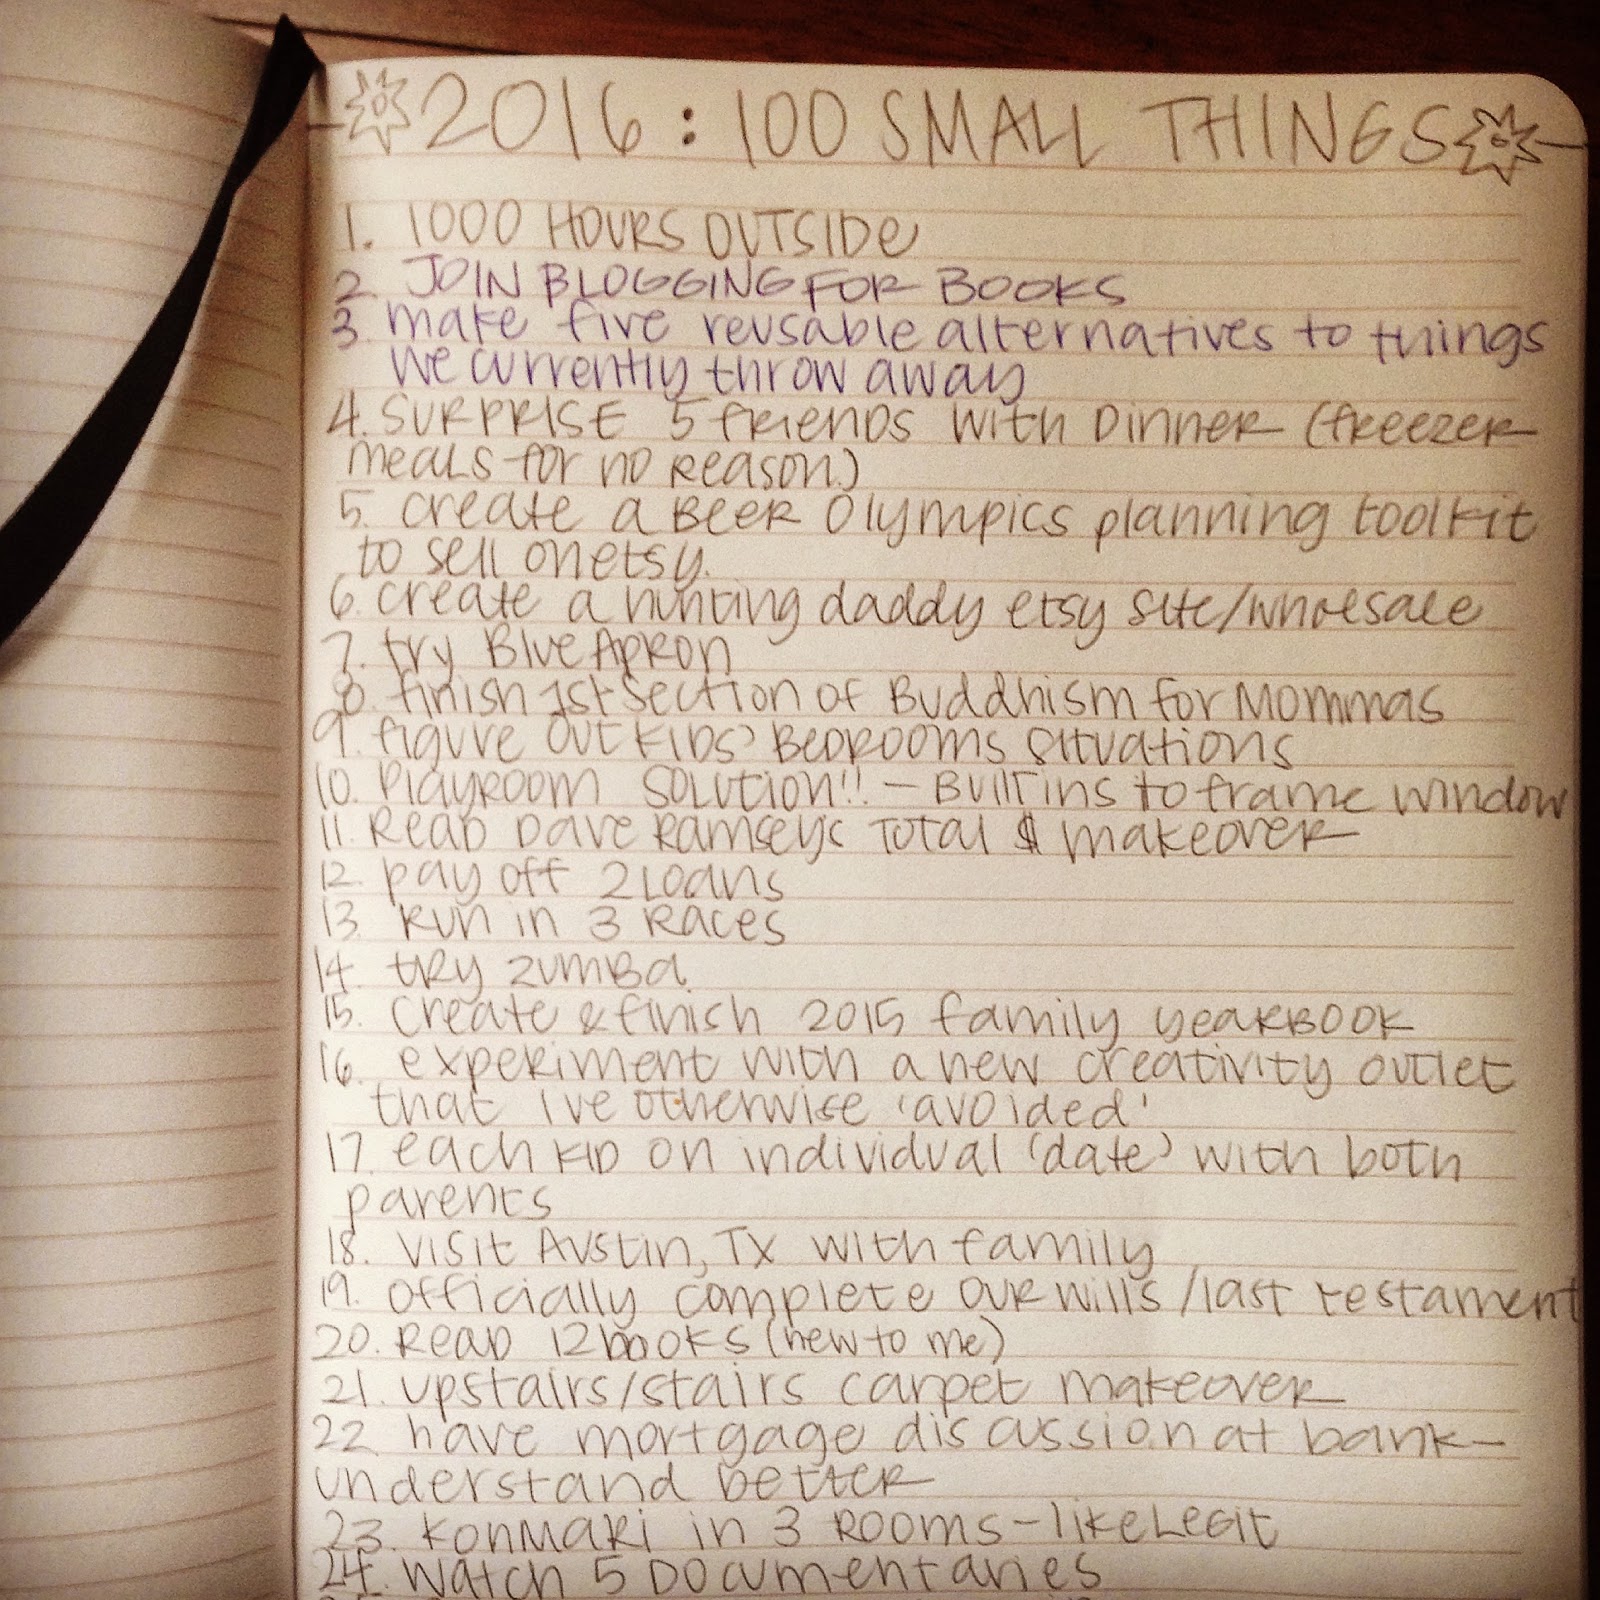 2016: 100 SMALL THINGS
1. 1000 HOURS OUTSIDE
2. JOIN BLOGGING FOR BOOKS
3. make five reusable alternatives to things
we currently throw away
4. SURPRISE 5 friends with Dinner (freezer
meals for no reason)
5. create a Beer Olympics planning toolkit
to sell on etsy.
6. create a hunting daddy etsy site/wholesale
7. try Blue Apron
8. finish 1st section of Buddhism for Mommas
9. figure out kids' Bedrooms situations
10. Playroom solution!! - Built ins to frame window
11. Read Dave Ramsey's Total $ makeover
12. pay off 2 loans
13. Run in 3 Races
14. try zumba.
15. create & finish 2015 family yearbook
16. experiment with a new creativity outlet
that i've otherwise 'avoided'
17. each kid on individual 'date' with both
parents
18. visit Austin, TX with family
19. officially complete our wills/last testament
20. Read 12 books (new to me)
21. upstairs/stairs carpet makeover
22. have mortgage discussion at bank-
understand better
23. KonMari in 3 Rooms - like Legit
24. Watch 5 Documentaries